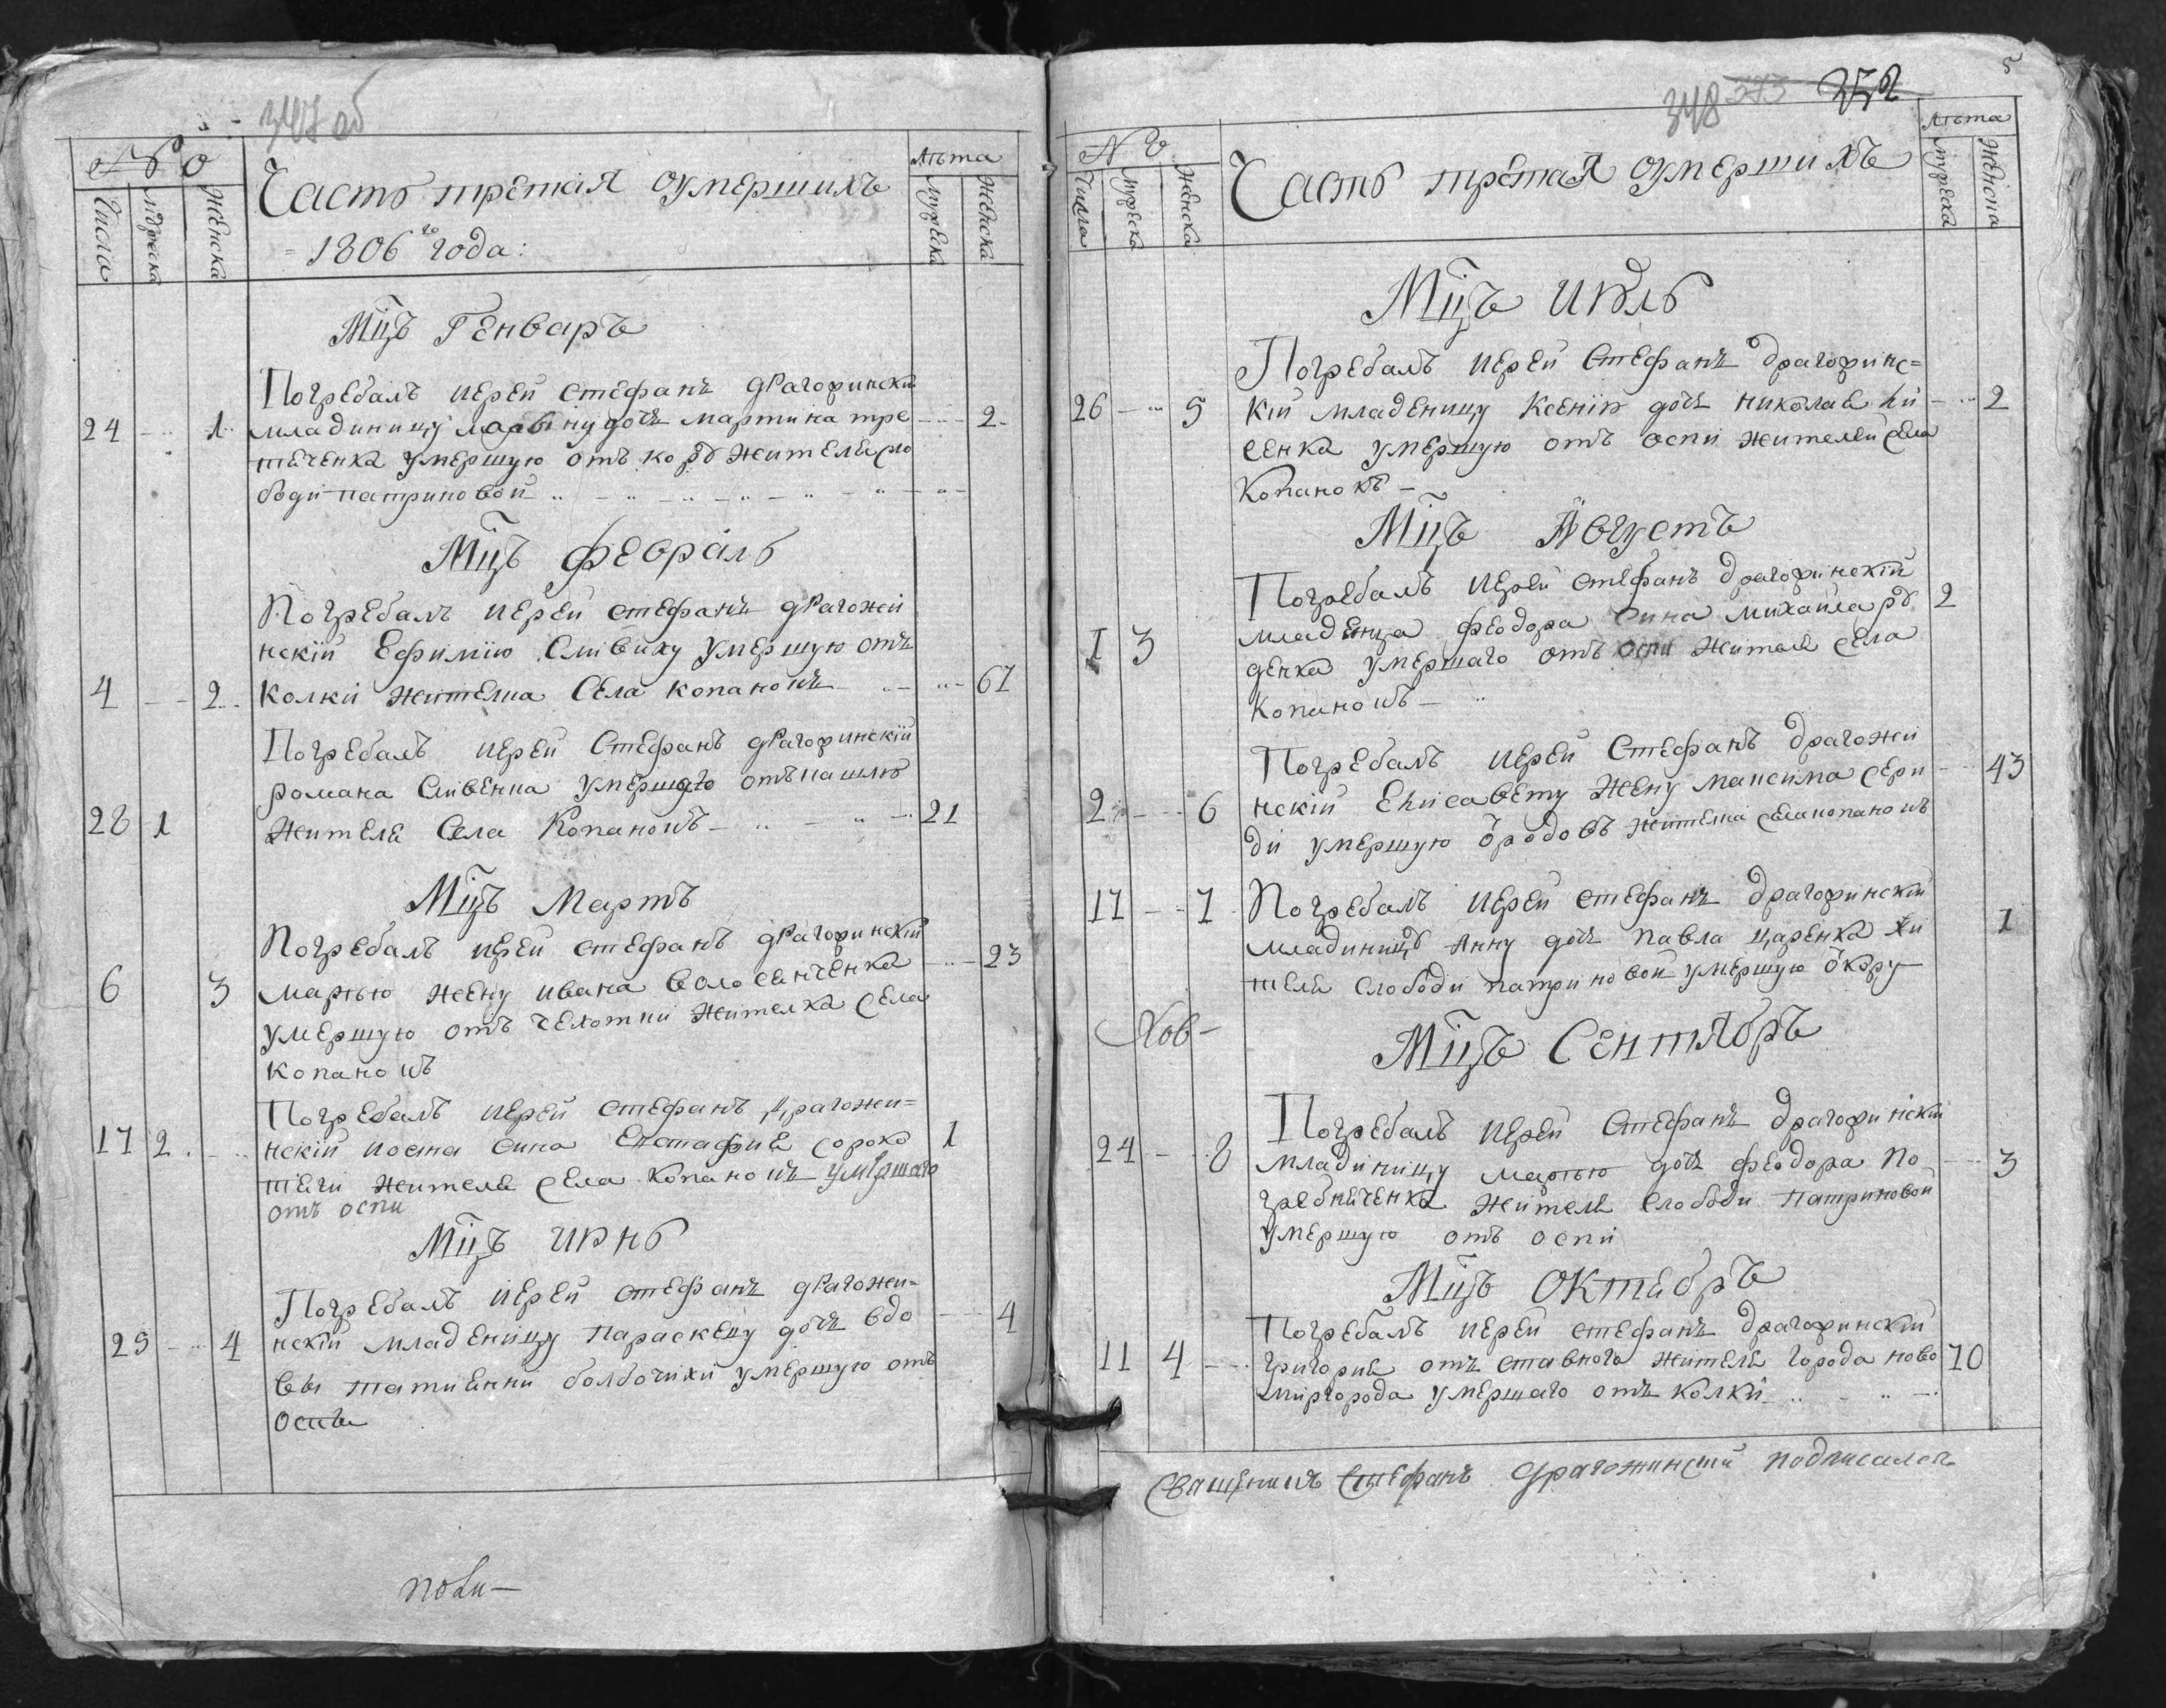 347 об
№
Числа
Мужеска
Женска
Часть третая оумершихъ
1806го года:
Лѣта
Мужеска
Женска
Мцъ Генваръ
Погребалъ иерей стефанъ драгожински
24 1 младиницу дочь мартина тре 2
умершую отъ кору жителя сло
боди патриновой
Мцъ февраль
Погребалъ иерей стефанъ драгожи
нскій Ефимию Сливиху умершую отъ
4 2 колки жителка Села копанокъ 67
Погребалъ иерей Стефанъ драгожинскій
романа Сливенка умершаго отъ кашлю
28 1 жителя Села Копанокъ 21
Мцъ Мартъ
Погребалъ иерей стефанъ драгожинскій
6 3 марью жену ивана волосенченка 23
умершую отъ жителка села
копанокъ
Погребалъ иерей стефанъ драгожи=
17 2 нскій коста сина Евстафия сороко 1
тяги жителя села Копанокъ умершаго
отъ оспи
Мцъ июнь
Погребалъ иерей стефанъ драгожи=
25 4 нскій младеницу параскеву дочь вдо 4
вы татиянни болбочихи умершую отъ
оспы
348 373 252
№
Числа
Мужеска
Женска
Часть третая оумершихъ
Лѣта
Мужеска
Женска
Мцъ июль
Погребалъ иерей Стефанъ драгожинс=
26 5 кій младеницу Ксенію дочь николая ли 2
сенка умершую отъ оспи жителя села
Копанокъ
Мцъ Августъ
Погребалъ иерей стефанъ драгожинскій
1 3 младенца феодора сина михайла ру 2
денка умершаго отъ оспи жителя села
Копанокъ
Погребалъ иерей Стефанъ драгожи
2 6 нскій Елисавету жену максима сери 43
ди умершую ѿ родовъ жителка села копанокъ
17 7 Погребалъ иерей стефанъ драгожинскій 1
младиницу Анну дочь павла царенка жи
теля слободи патриновой умершую ѿ кору
Мцъ Сентябръ
Погребалъ иерей Стефанъ драгожинскій
24 8 младиницу марью дочь феодора по 3
гребниченка жителя слободи патриновой
умершую отъ оспи
Мцъ Октябръ
Погребалъ иерей стефанъ драгожинскій
11 4 григория отъ ставного жителя города ново 70
миргорода умершаго отъ колки
Священникъ Стефанъ Драгожинскій подписался